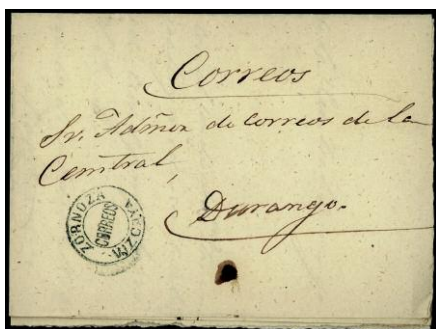 Correos
Sr. Admor. de Correos de la
Central,
Durango.
ZORNOZA
CORREOS
VIZCAYA